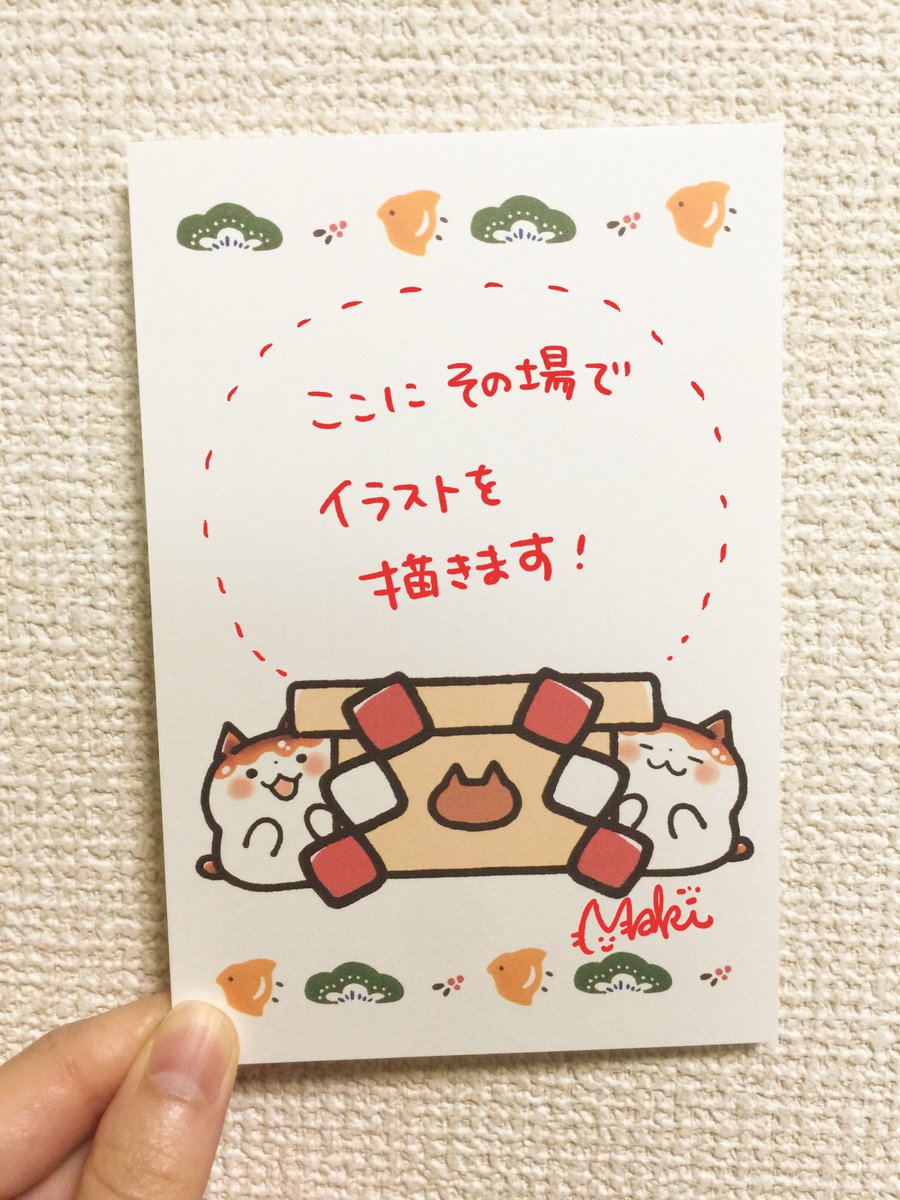 ここに その場で
イラストを
描きます!
Maki